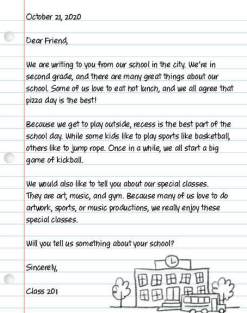 October 21, 2020
Dear Friend,
We are writing to you from our school in the city. We're in
second grade, and there are many great things about our
school. Some of us love to eat hot lunch, and we all agree that
pizza day is the best!
Because we get to play outside, recess is the best part of the
school day. While some kids like to play sports like basketball,
others like to jump rope. Once in a while, we all start a big
game of kickball.
We would also like to tell you about our special classes.
They are art, music, and gym. Because many of us love to do
artwork, sports, or music productions, we really enjoy these
special classes.
Will you tell us something about your school?
Sincerely,
Class 201